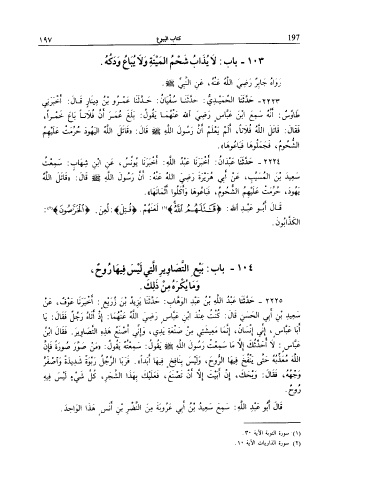 197 كتاب البيوع ١٩٧
١٠٣ - باب: لَا يُذَابُ شَحْمُ المَيْتَةِ وَلَا يُبَاعُ وَدَكُهُ.
رَوَاهُ جَابِرٌ رَضِيَ اللَّهُ عَنْهُ، عَنِ النَّبِيِّ ﷺ.
٢٢٢٣ - حَدَّثَنَا الحُمَيْدِيُّ: حَدَّثَنَا سُفْيَانُ: حَدَّثَنَا عَمْرُو بْنُ دِينَارٍ قَالَ: أَخْبَرَنِي
طَاوُسٌ: أَنَّهُ سَمِعَ ابْنَ عَبَّاسٍ رَضِيَ اللَّهُ عَنْهُمَا يَقُولُ: بَلَغَ عُمَرَ أَنَّ فُلَاناً بَاعَ خَمْراً،
فَقَالَ: قَاتَلَ اللَّهُ فُلَاناً، أَلَمْ يَعْلَمْ أَنَّ رَسُولَ اللَّهِ ﷺ قَالَ: «قَاتَلَ اللَّهُ اليَهُودَ حُرِّمَتْ عَلَيْهِمُ
الشُّحُومُ، فَجَمَلُوهَا فَبَاعُوهَا».
٢٢٢٤ - حَدَّثَنَا عَبْدَانُ: أَخْبَرَنَا عَبْدُ اللَّهِ: أَخْبَرَنَا يُونُسُ، عَنِ ابْنِ شِهَابٍ: سَمِعْتُ
سَعِيدَ بْنَ المُسَيَّبِ، عَنْ أَبِي هُرَيْرَةَ رَضِيَ اللَّهُ عَنْهُ: أَنَّ رَسُولَ اللَّهِ ﷺ قَالَ: «قَاتَلَ اللَّهُ
يَهُودَ، حُرِّمَتْ عَلَيْهِمُ الشُّحُومُ، فَبَاعُوهَا وَأَكَلُوا أَثْمَانَهَا».
قَالَ أَبُو عَبْدِ اللَّهِ: ﴿قَٰتَلَهُمُ ٱللَّهُ﴾(١) لَعَنَهُمْ. ﴿قُتِلَ﴾: لُعِنَ. ﴿ٱلْخَرَّٰصُونَ﴾(٢):
الكَذَّابُونَ.
١٠٤ - باب: بَيْعِ التَّصَاوِيرِ الَّتِي لَيْسَ فِيهَا رُوحٌ،
وَمَا يُكْرَهُ مِنْ ذَلِكَ.
٢٢٢٥ - حَدَّثَنَا عَبْدُ اللَّهِ بْنُ عَبْدِ الوَهَّابِ: حَدَّثَنَا يَزِيدُ بْنُ زُرَيْعٍ: أَخْبَرَنَا عَوْفٌ، عَنْ
سَعِيدِ بْنِ أَبِي الحَسَنِ قَالَ: كُنْتُ عِنْدَ ابْنِ عَبَّاسٍ رَضِيَ اللَّهُ عَنْهُمَا، إِذْ أَتَاهُ رَجُلٌ فَقَالَ: يَا
أَبَا عَبَّاسٍ، إِنِّي إِنْسَانٌ، إِنَّمَا مَعِيشَتِي مِنْ صَنْعَةِ يَدِي، وَإِنِّي أَصْنَعُ هَذِهِ التَّصَاوِيرَ. فَقَالَ ابْنُ
عَبَّاسٍ: لَا أُحَدِّثُكَ إِلَّا مَا سَمِعْتُ رَسُولَ اللَّهِ ﷺ يَقُولُ: سَمِعْتُهُ يَقُولُ: «مَنْ صَوَّرَ صُورَةً فَإِنَّ
اللَّهَ مُعَذِّبُهُ حَتَّى يَنْفُخَ فِيهَا الرُّوحَ، وَلَيْسَ بِنَافِخٍ فِيهَا أَبَداً». فَرَبَا الرَّجُلُ رَبْوَةً شَدِيدَةً وَاصْفَرَّ
وَجْهُهُ، فَقَالَ: وَيْحَكَ، إِنْ أَبَيْتَ إِلَّا أَنْ تَصْنَعَ، فَعَلَيْكَ بِهَذَا الشَّجَرِ، كُلِّ شَيْءٍ لَيْسَ فِيهِ
رُوحٌ.
قَالَ أَبُو عَبْدِ اللَّهِ: سَمِعَ سَعِيدُ بْنُ أَبِي عَرُوبَةَ مِنَ النَّضْرِ بْنِ أَنَسٍ هَذَا الوَاحِدَ.
(١) سورة التوبة الآية ٣٠.
(٢) سورة الذاريات الآية ١٠.